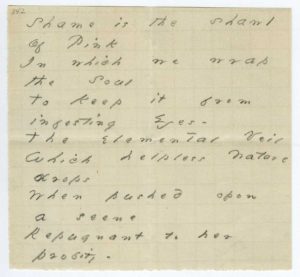 842
Shame is the shawl
of Pink
In which we wrap
the Soul
to keep it from
infesting Eyes -
the elemental Veil
Which helpless Nature
drops
When pushed upon
a scene
Repugnant to her
probity -